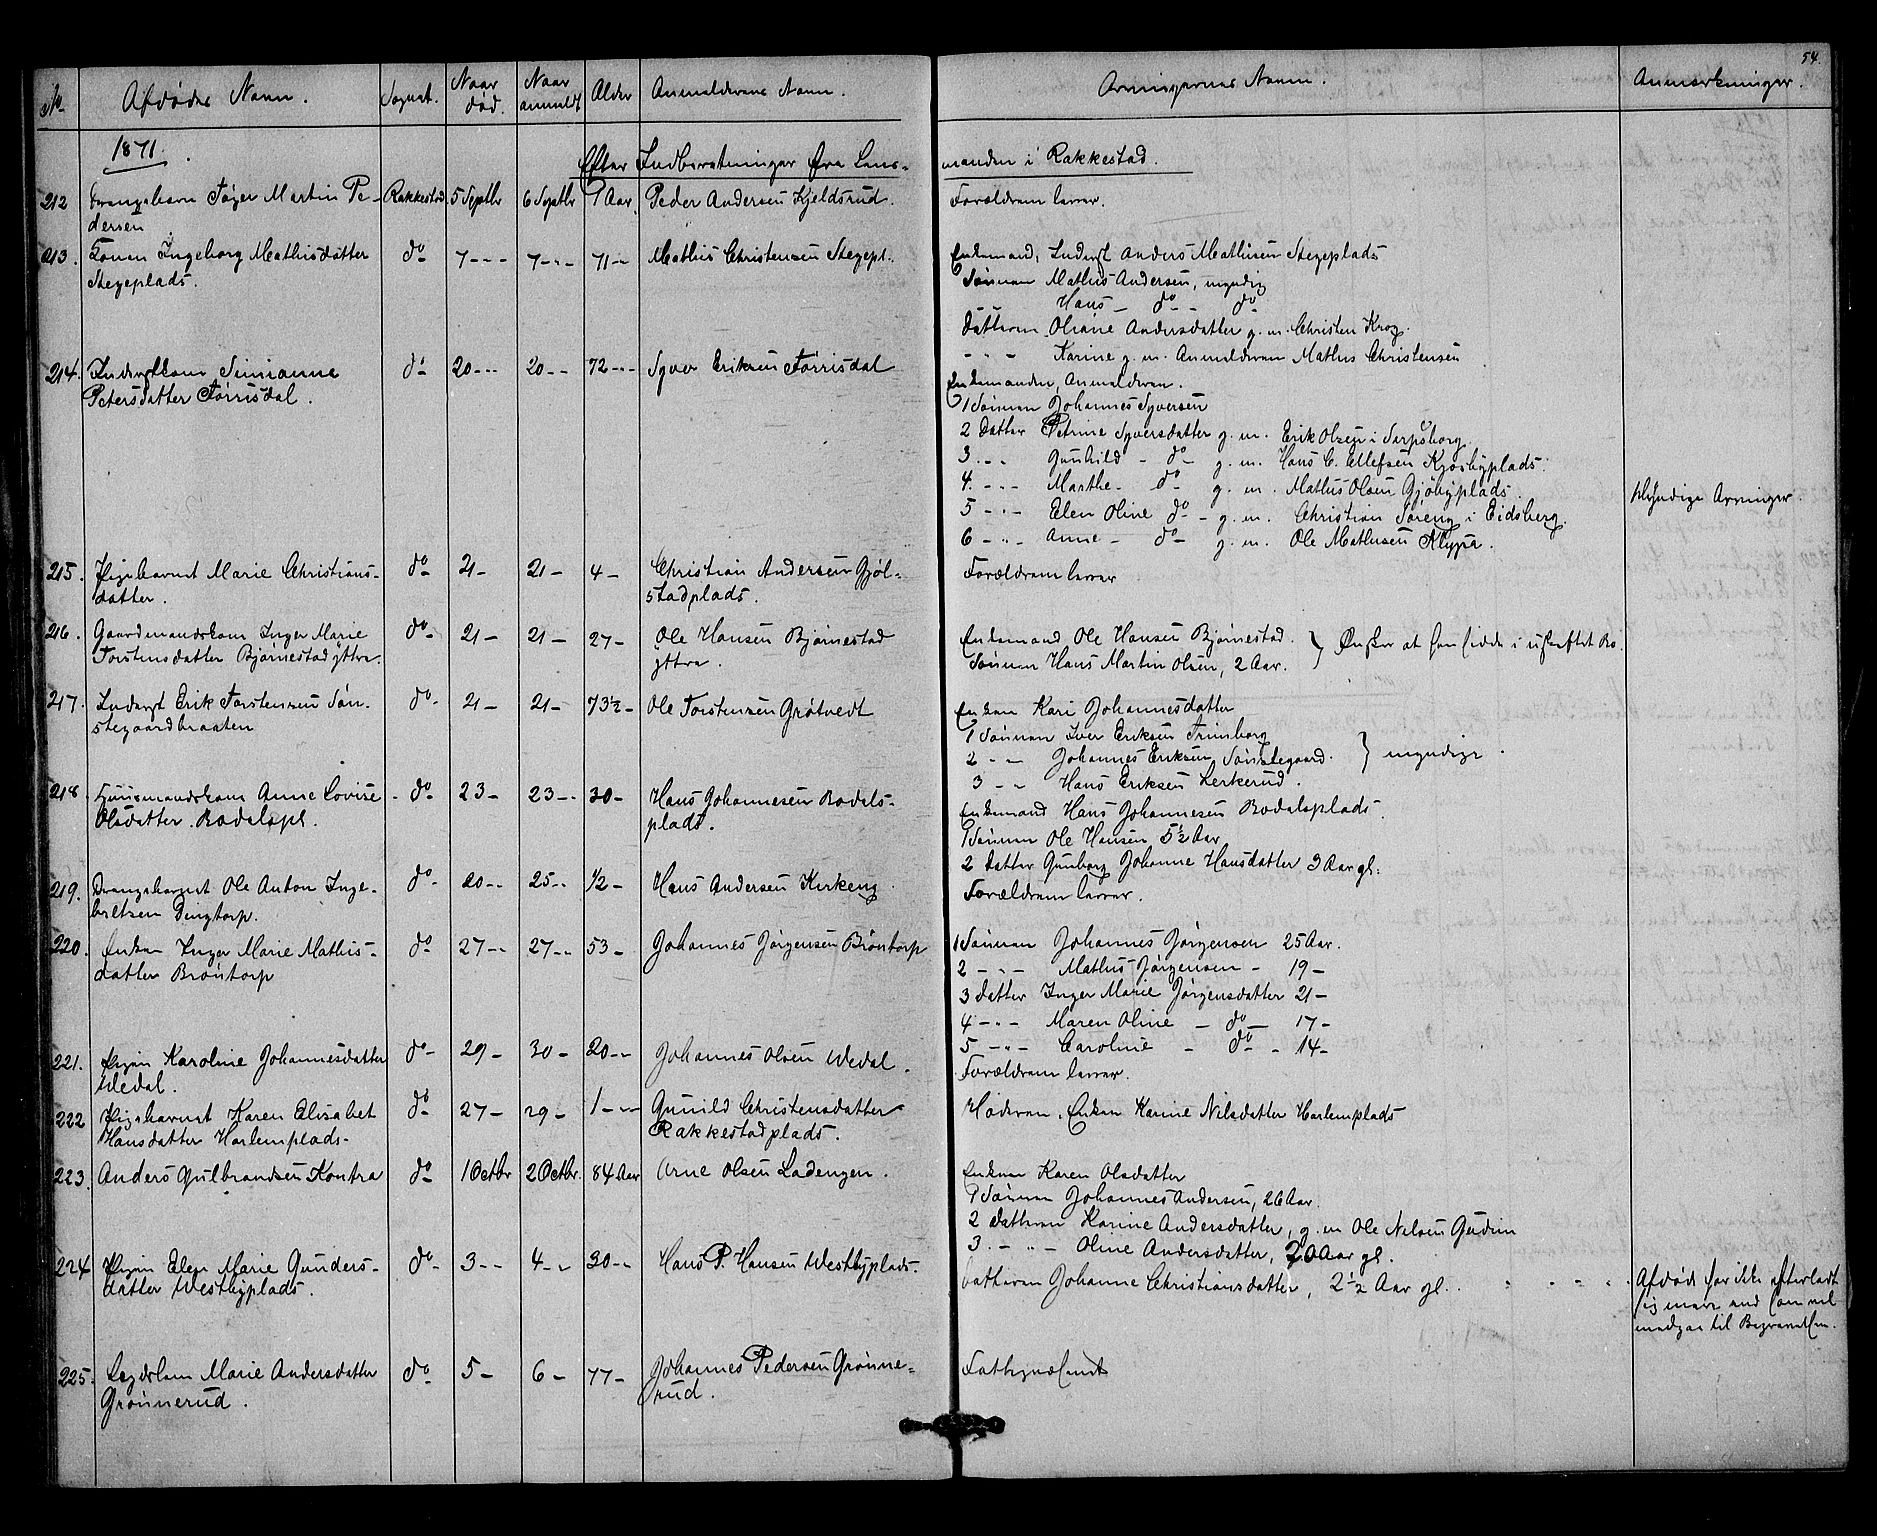 54.
No Afdødes Navn. Sognet. Naar død. Naar anmeldt Alder Anmelderens Navn. Arvingernes Navne. Anmærkninger.
1871.
Efter Indberetninger fra Lens-
manden i Rakkestad.
212 Drengebarn Martin Pe- Rakkestad 5 Septbr 6 Septbr 1 Aar Peder Andersen Kjeldsrud. Forældrene lever.
dersen
213. Konen Ingeborg Mathisdatter do 7 - 7 - 71 - Mathis Christensen Stegepl. Enkemand, Inderst Anders Mathisen Stegeplads
Stegeplads. Sønnen Mathis Andersen, myndig
Hans - do - do
Datteren Oliane Andersdatter g. m. Christen Krog.
- " - Karine g. m. Anmelderen Mathis Christensen
214. Inderstkone Simianne do 20 - 20 - 72 - Syver Eriksen Tørrisdal Enkemanden, Anmelderen.
Petersdatter Tørrisdal. 1 Sønnen Johannes Syversen
2 Datter Petrine Syversdatter g. m. Erik Olsen i Sarpsborg.
3. - " Gunhild - do - g. m. Hans C. Ellefsen Kjosbyplads.
4. - " - Marthe - do - g. m. Mathis Olsen Gjøbyplads. Myndige Arvinger.
5 - " - Elen Oline do - g. m. Christian Toreng i Eidsberg.
6 - " - Anne - do - g. m. Ole Mathisen Klypa.
215. Pigebarnet Marie Christians- do 21 - 21 - 4 - Christian Andersen Gjøl- Forældrene lever
datter. stadplads.
216. Gaardmandskone Inger Marie do 21 - 21 - 27 - Ole Hansen Bjørnestad Enkemand Ole Hansen Bjørnestad. } Ønsker at hensidde i uskiftet Bo.
Torstensdatter Bjørnestad yttre. yttre. Sønnen Hans Martin Olsen, 2 Aar.
217. Inderst Erik Torstensen Søn- do 21 - 21 - 73½ - Ole Torstensen Grøtvedt Enken Kari Johannesdatter
stegaardbraaten 1 Sønnen Iver Eriksen Trimborg
2 - " - Johannes Eriksen Sønstegaard. } myndige.
3 - " Hans Eriksen Lerkerud.
218. Huusmandskone Anne Lovise do 23 - 23 - 30 - Hans Johannesen Bodals- Enkemand Hans Johannesen Bodalsplads.
Olsdatter. Bodalspl. plads. 1 Sønnen Ole Hansen 5½ Aar
2 Datter Gunborg Johanne Hansdatter 3 Aar gl.
219. Drengebarnet Ole Anton Inge- do 20 - 25 - ½ - Hans Andersen Kirkeng. Forældrene lever.
bretsen Dingtorp.
220. Enken Inger Marie Mathis- do 27 - 27 - 53 - Johannes Jørgensen Brøntorp 1 Sønnen Johannes Jørgensen 25 Aar.
datter Brøntorp 2 - " - Mathis Jørgensen - 19 -
3 Datter Inger Marie Jørgensdatter 21 -
4 - " - Maren Oline - do - 17 -
5 - " - Caroline - do - 14 -
221. Pigen Karoline Johannesdatter do 29 - 30 - 20 - Johannes Olsen Wedal. Forældrene lever.
Wedal.
222 Pigebarnet Karen Elisabet do 27 - 29 - 1 - Gunild Christensdatter Moderen, Enken Karine Nilsdatter Harlemplads
Hansdatter Harlemplads. Rakkestadplads.
223. Anders Gulbrandsen Kontra do 1 Octbr 2 Octbr. 84 Aar Arne Olsen Ladengen. Enken Karen Olsdatter
1 Sønnen Johannes Andersen, 26 Aar.
2 Datteren Karine Andersdatter, g. m Ole Nilsen Gudim
3. - " - Oline Andersdatter, 20 Aar gl.
224 Pigen Elen Marie Gunders- do 3 - 4 - 30 - Hans P. Hansen Westbyplads. Datteren Johanne Christiansdatter, 2½ Aar gl. Afdøde har ikke efterladt
datter Westbyplads. sig mere end som vil
medgaa til Begravelsen.
225. Lægdslem Marie Andersdatter do 5 - 6 - 77 - Johannes Pedersen Grønne- Fattigvæsenet
Grønnerud. rud.